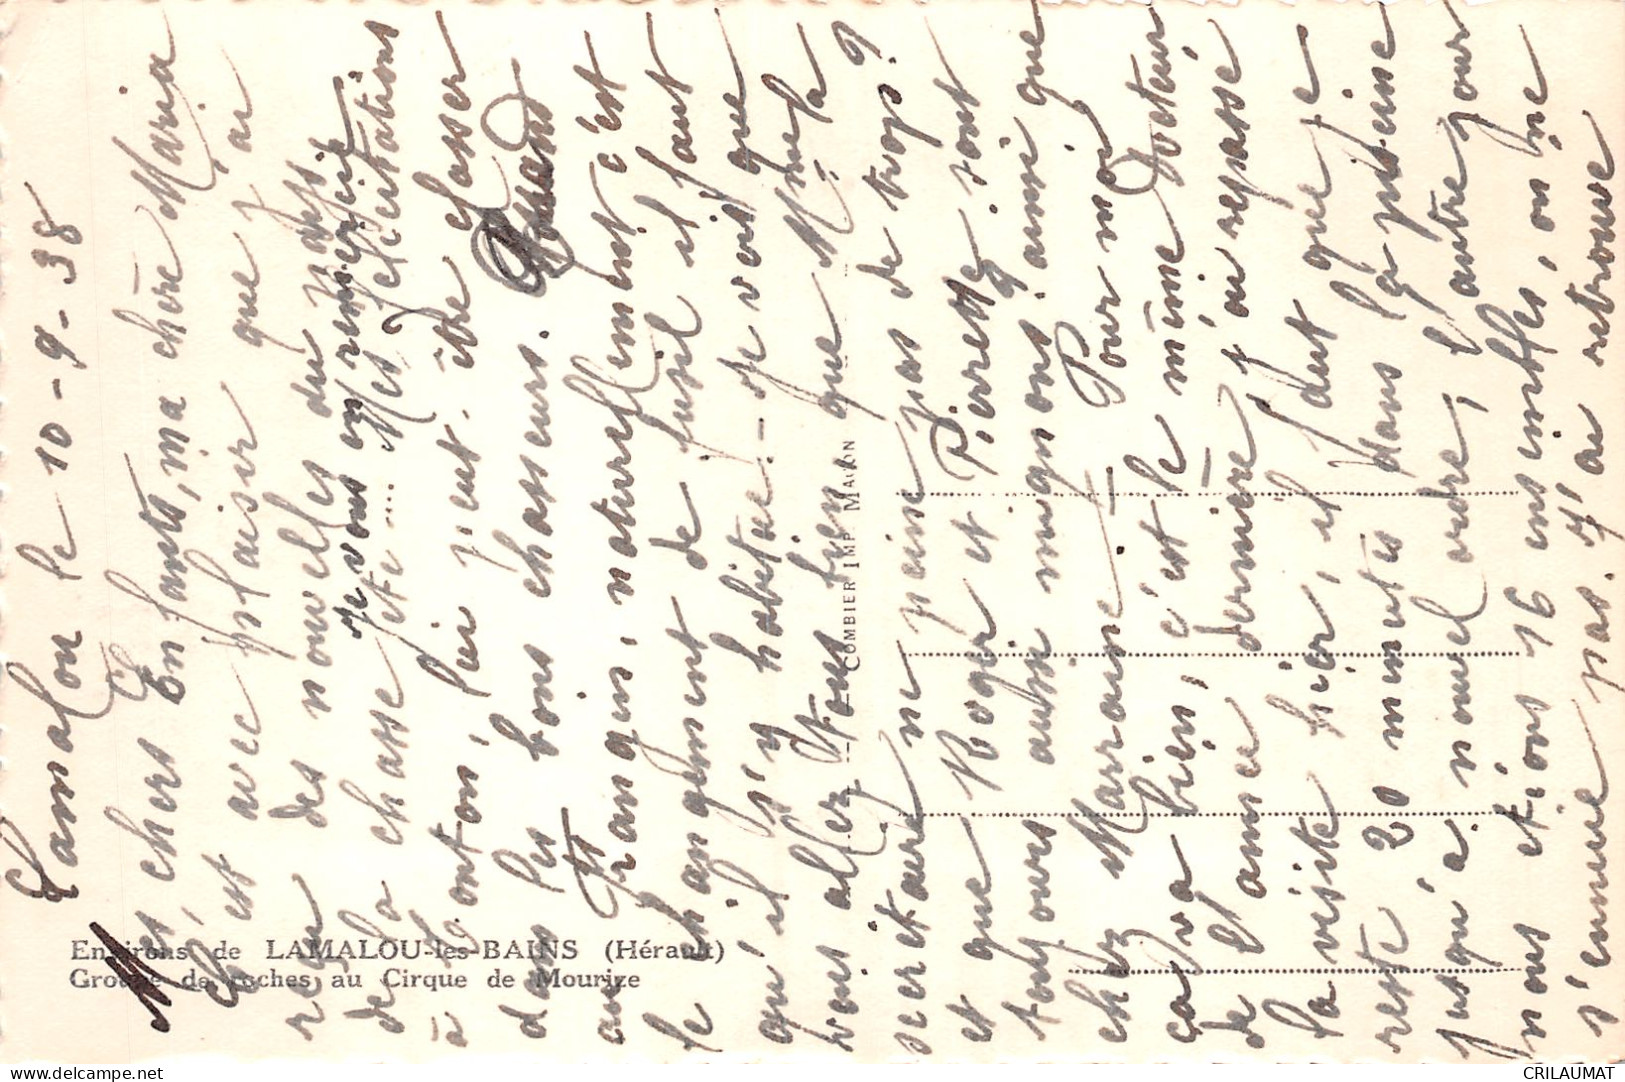 Lamalou le 10-9-38
Mes chers Enfants, ma chère Maria
C'est avec plaisir que j'ai
reçu des nouvelles du
je vous en remercie
de la chasse etc... Mes félicitations
à Tonton, lui peut-être classer
dans les bons chasseurs.
au Frangin, naturellement c'est
le changement de fusil il faut
qu'il s'y habitue - Je vois que
vous allez tous bien que Mr le
secrétaire ne peine pas de trop?
et que Roger et Pierrette sont
toujours aussi mignons? ainsi que
chez Marraine - Pour moi
ça va bien, c'est le même Docteur
de l'année dernière j'ai repassé
la visite hier, il faut que je
reste 20 minutes dans la piscine
jusqu'à nouvel ordre, l'autre jour
nous étions 16 ensembles, on ne
s'ennuie pas. J'ai retrouvé
Environs de LAMALOU-les-BAINS (Hérault)
Groupe de roches au Cirque de Mourèze
COMBIER IMP MACON
CRILAUMAT